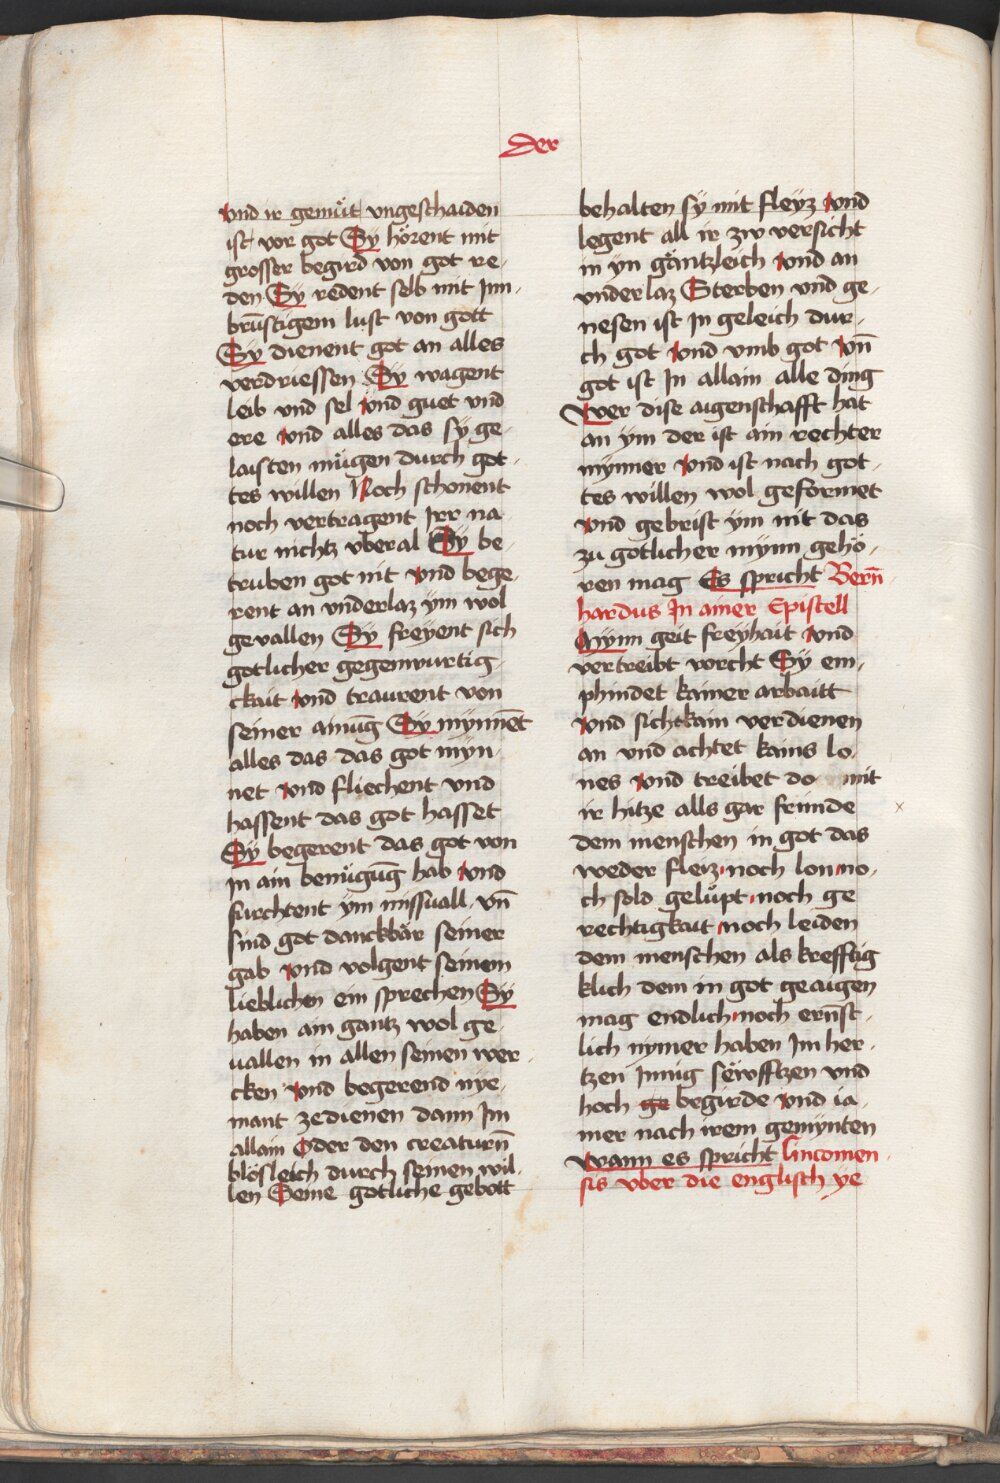 der
vnd ir gemuͤt vngeschaiden
ist vor got Sy hoͤrent mit
grosser begird von got re-
den Sÿ redent selb mit Inn-
brūstigem lust von gott
Sÿ dienent got an alles
verdriessen Sy wagent
leib vnd sel vnd guet vnd
ere vnd alles das sÿ ge-
laisten muͤgen durch got-
tes willen Noch schonent
noch vertragent Irr na
tur nichtz vberal Sÿ be-
truben got nit vnd bege-
rent an vnderlaz ym wol
gevallen Sÿ freyent sich
gotlicher gegenwurtig-
ckait vnd traurent von
seiner ainūg Sÿ mynnēt
alles das das got myn-
net vnd fliechent vnd
hassent das got hasset
Sÿ begerent das got von
In ain benuͤgūg hab vnd
furchtent ym missuall vn̄
sind got danckbaͤr seiner
gab vnd volgent seinem
lieblichen ein sprechen Sÿ
haben ain gantz wol ge-
uallen in allen seinen wer-
cken vnd begerend nye-
mant zedienen dann Im
allain Oder den creaturn̄
bloͤsleich durch seinen wil-
len Seine gotliche gebott
behalten sÿ mit fleÿz vnd
legent all ir zw versicht
in yn gaͤntzleich vnd an
vnderlaz Sterben vnd ge-
nesen ist In geleich dur-
ch got vnd vmb got vn̄
got ist In allain alle ding
Wer dise aigenschafft hat
an ym der ist ain rechter
mynner vnd ist nach got-
tes willen wol geformet
vnd gebrist ym nit das
zu gotlicher mynn gehoͤ-
ren mag Es spricht Bern̄
hardus In ainer Epistell
Mynn geit freyhait vnd
vertreibt vorcht Sÿ em-
phindet kainer arbaitt
vnd sicht kain verdienen
an vnd achtet kains lo-
nes vnd treibet do mit
ir hitze alls gar frunde
dem menschen in got das
weder fleiz noch lon no-
ch sold geluͤpt noch ge
rechtigkait noch leiden
dem menschen als krefftig
klich dem in got geaigen
mag endlich noch ern̄st-
lich nymer haben Im her-
tzen Innig seͤwfftzen vnd
hoch ge begirde vnd ia-
mer nach irem gemynten
Wann es spricht lincomen-
sis vber die englisch ÿe